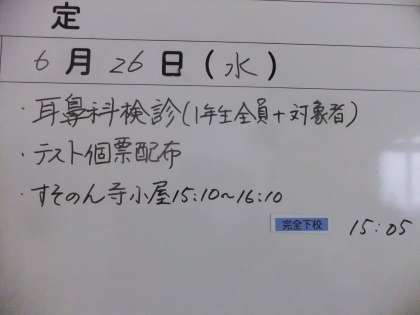 定
6月26日(水)
・耳鼻科検診(1年生全員+対象者)
・テスト個票配布
・すそのん寺小屋15:10~16:10
完全下校 15:05